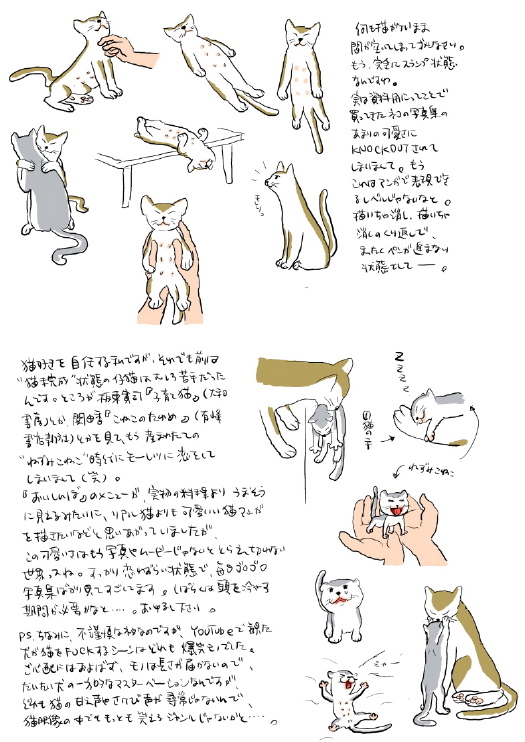 何も描かないまま
間が空いてしまってすみません。
もう、完全にスランプ状態
なんですわ。
実は資料用にってことで
買ってきたネコの写真集の
あまりの可愛さに
KNOCKOUTされて
しまいまして。もう
これはマンガで表現でき
るレベルじゃないなと。
描いちゃ消し、描いちゃ
消しのくり返しで、
まったくペンが進まない
状態でして──。
きりっ
猫好きを自任する私ですが、それでも前は
"猫未完成"状態の仔猫はむしろ苦手だった
んです。ところが、板東寛司『子育て猫』(大和
書房)とか、関由香『こねこのたかめ』(有峰
書店新社)とかを見て、もう産まれたての
"ねずみこねこ"時代にもーレツに恋をして
しまいまして(笑)。
『おいしんぼ』のメニューが、実物の料理より うまそう
に見えるみたいに、リアル猫よりも可愛い猫マンガ
を描きたいなどと思いあがっていましたが、
この可愛いさはもう写真やムービーじゃないととらえきれない
世界っスね。すっかり恋わずらい状態で、毎日ゴロゴロ
写真集ばかり見てすごいます。しばらくは頭を冷やす
期間が必要かなと…。おゆるし下さい。
P.S. ちなみに、不謹慎なネタなのですが、YouTubeで観た
犬が猫をFUCKするシーンはどれも爆笑モノでした。
ご心配にはおよばず、モノは長さが届かないので、
だいたい犬の一方的なマスターベーションなんですが、
どれも猫の目と声やさけび声が尋常じゃないんで、
猫映像の中でもっとも笑えるジャンルじゃないかと……。
ZZZZ
ねずみこねこ
ミャー